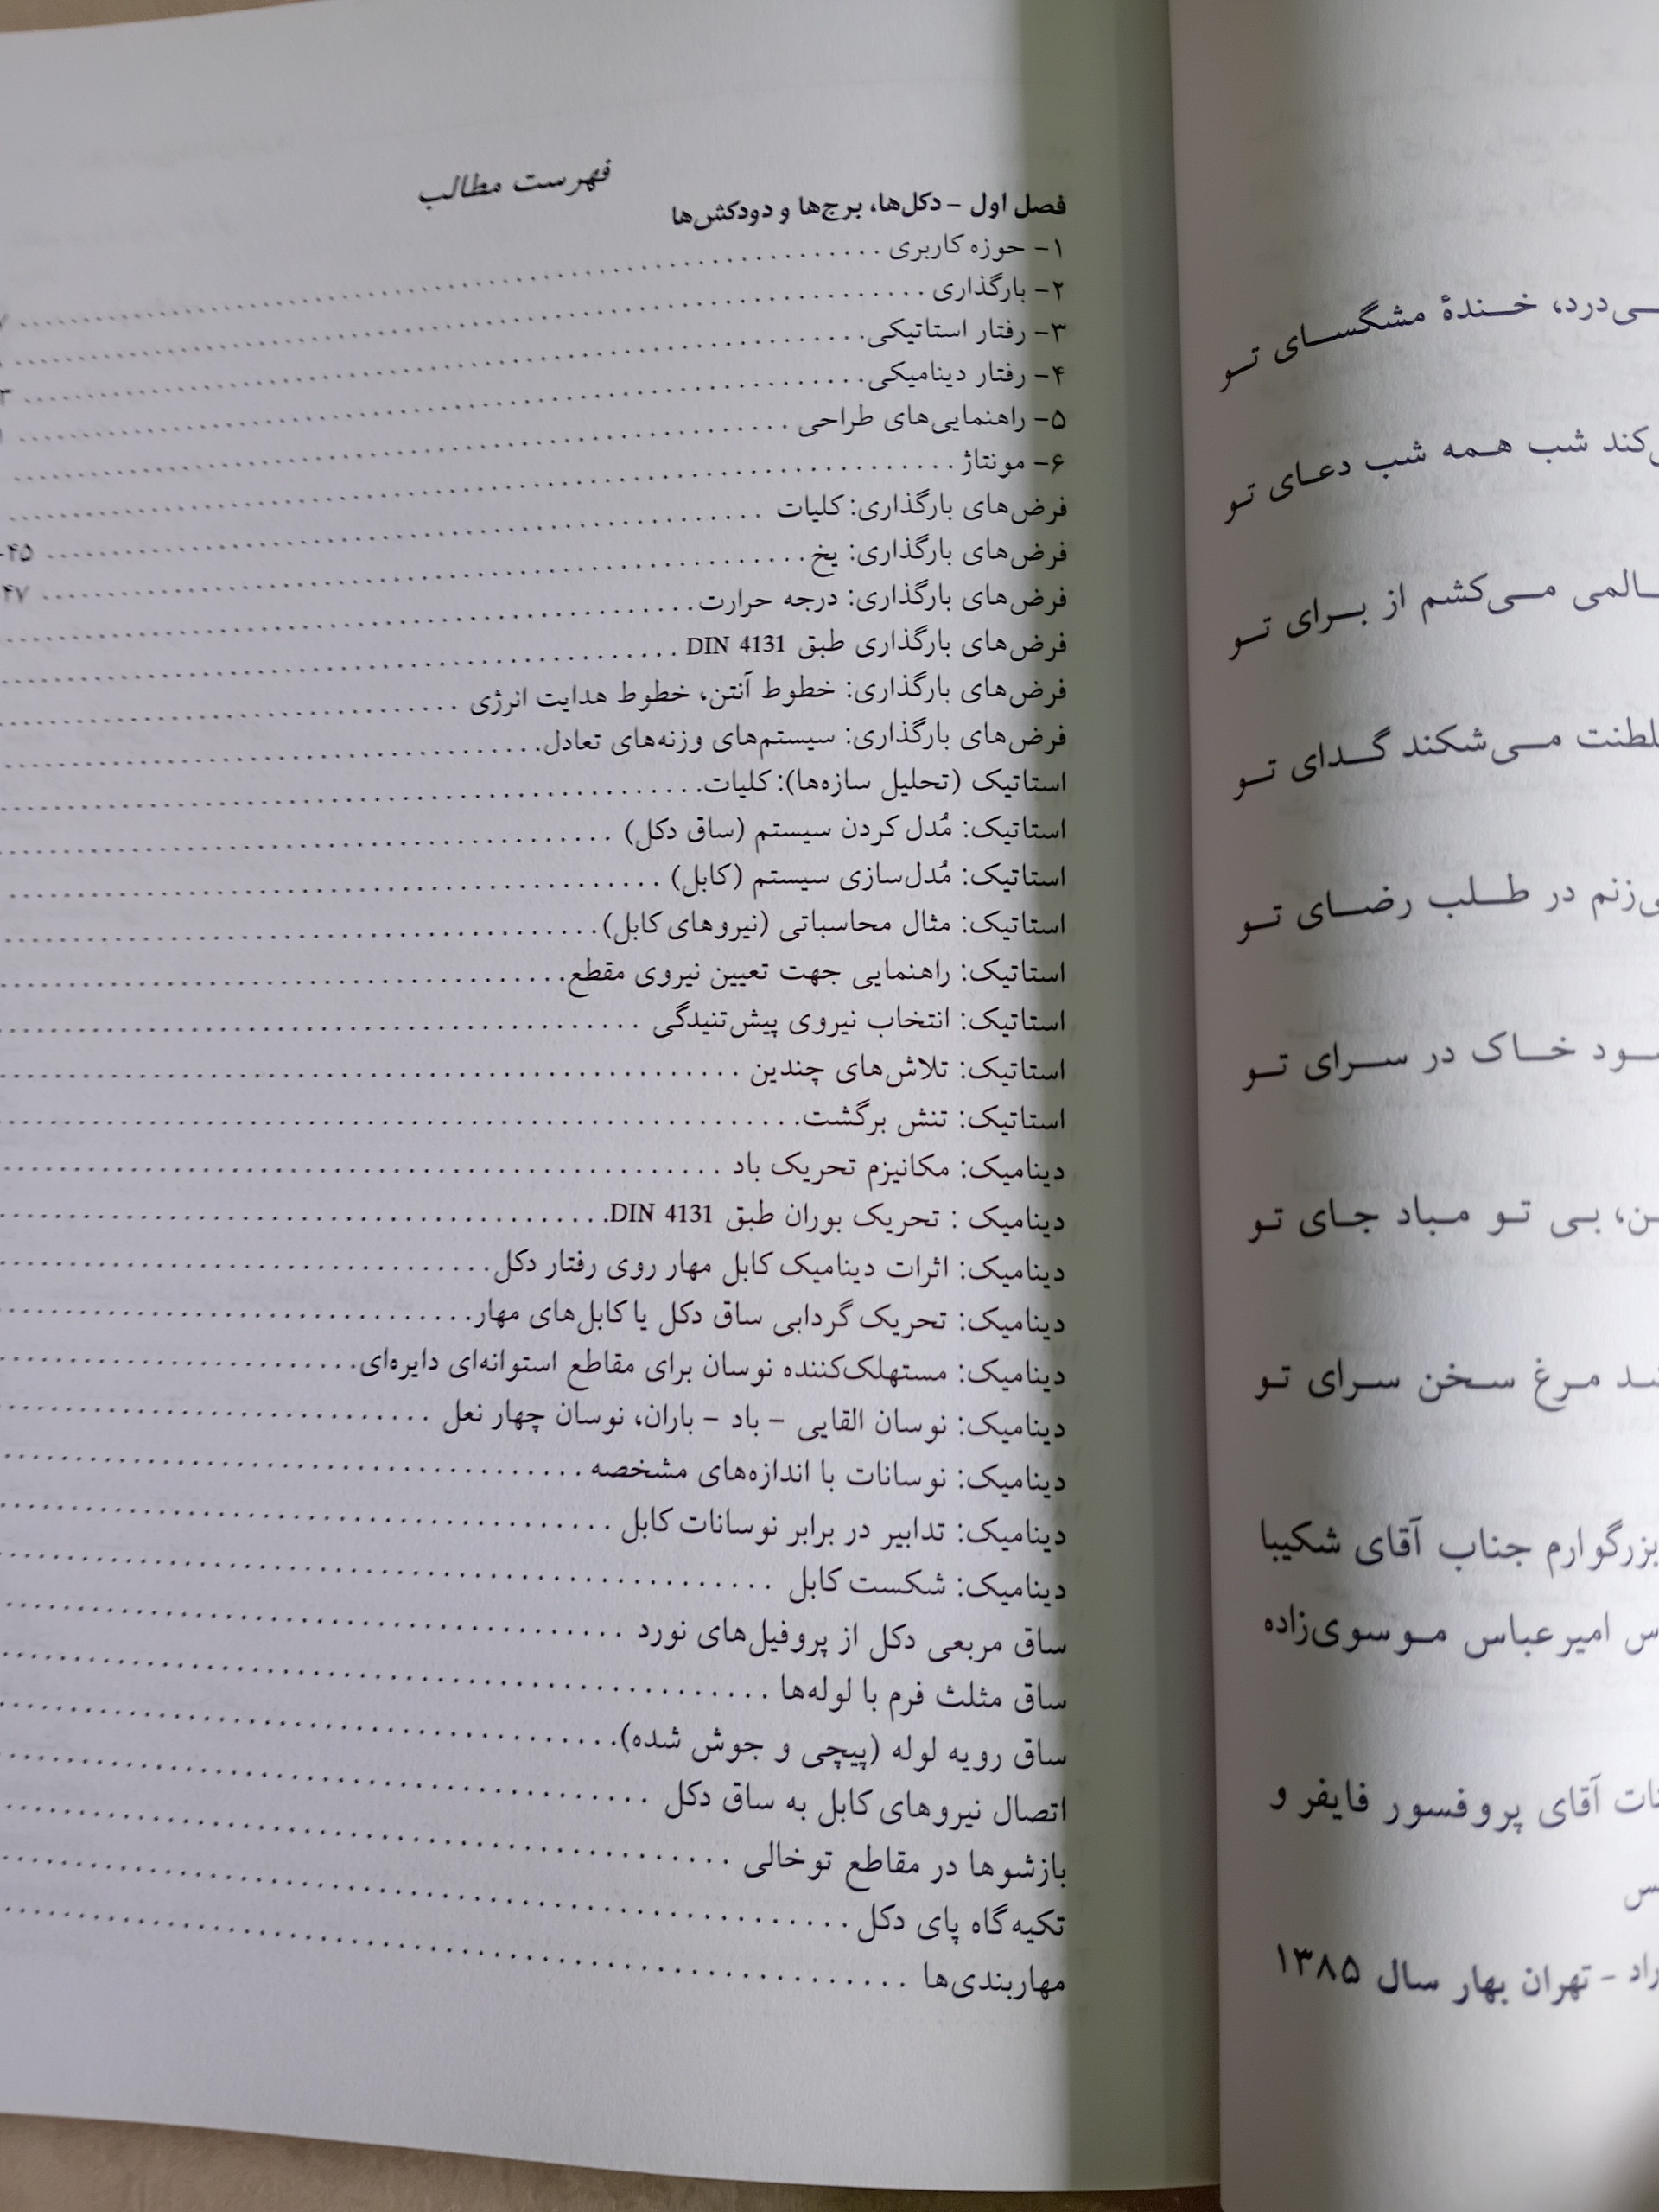 ـی‌درد، خـنـدۀ مشگسـای تـو
ـ‌کند شب هـمه شب دعـای تـو
ـالمی مـی‌کشم از بـرای تـو
ـلطنت مـی‌شکند گـدای تـو
ـی‌زنم در طـلب رضـای تـو
ـود خـاک در سـرای تـو
ـن، بـی تـو مـباد جـای تـو
ـد مـرغ سـخن سـرای تـو
بزرگوارم جناب آقای شکیبا
ـس امیرعباس مـوسوی‌زاده
ـات آقای پروفسور فایفر و
ـس
ـراد - تهران بهار سال ۱۳۸۵
فهرست مطالب
فصل اول - دکل‌ها، برج‌ها و دودکش‌ها
۱- حوزه کاربری
۲- بارگذاری
۳- رفتار استاتیکی
۴- رفتار دینامیکی
۵- راهنمایی‌های طراحی
۶- مونتاژ
فرض‌های بارگذاری: کلیات
فرض‌های بارگذاری: یخ ۴۵
فرض‌های بارگذاری: درجه حرارت ۴۷
فرض‌های بارگذاری طبق DIN 4131
فرض‌های بارگذاری: خطوط آنتن، خطوط هدایت انرژی
فرض‌های بارگذاری: سیستم‌های وزنه‌های تعادل
استاتیک (تحلیل سازه‌ها): کلیات
استاتیک: مُدل کردن سیستم (ساق دکل)
استاتیک: مُدل‌سازی سیستم (کابل)
استاتیک: مثال محاسباتی (نیروهای کابل)
استاتیک: راهنمایی جهت تعیین نیروی مقطع
استاتیک: انتخاب نیروی پیش‌تنیدگی
استاتیک: تلاش‌های چندین
استاتیک: تنش برگشت
دینامیک: مکانیزم تحریک باد
دینامیک : تحریک بوران طبق DIN 4131
دینامیک: اثرات دینامیک کابل مهار روی رفتار دکل
دینامیک: تحریک گردابی ساق دکل یا کابل‌های مهار
دینامیک: مستهلک‌کننده نوسان برای مقاطع استوانه‌ای دایره‌ای
دینامیک: نوسان القایی - باد - باران، نوسان چهار نعل
دینامیک: نوسانات با اندازه‌های مشخصه
دینامیک: تدابیر در برابر نوسانات کابل
دینامیک: شکست کابل
ساق مربعی دکل از پروفیل‌های نورد
ساق مثلث فرم با لوله‌ها
ساق رویه لوله (پیچی و جوش شده)
اتصال نیروهای کابل به ساق دکل
بازشوها در مقاطع توخالی
تکیه‌گاه پای دکل
مهاربندی‌ها